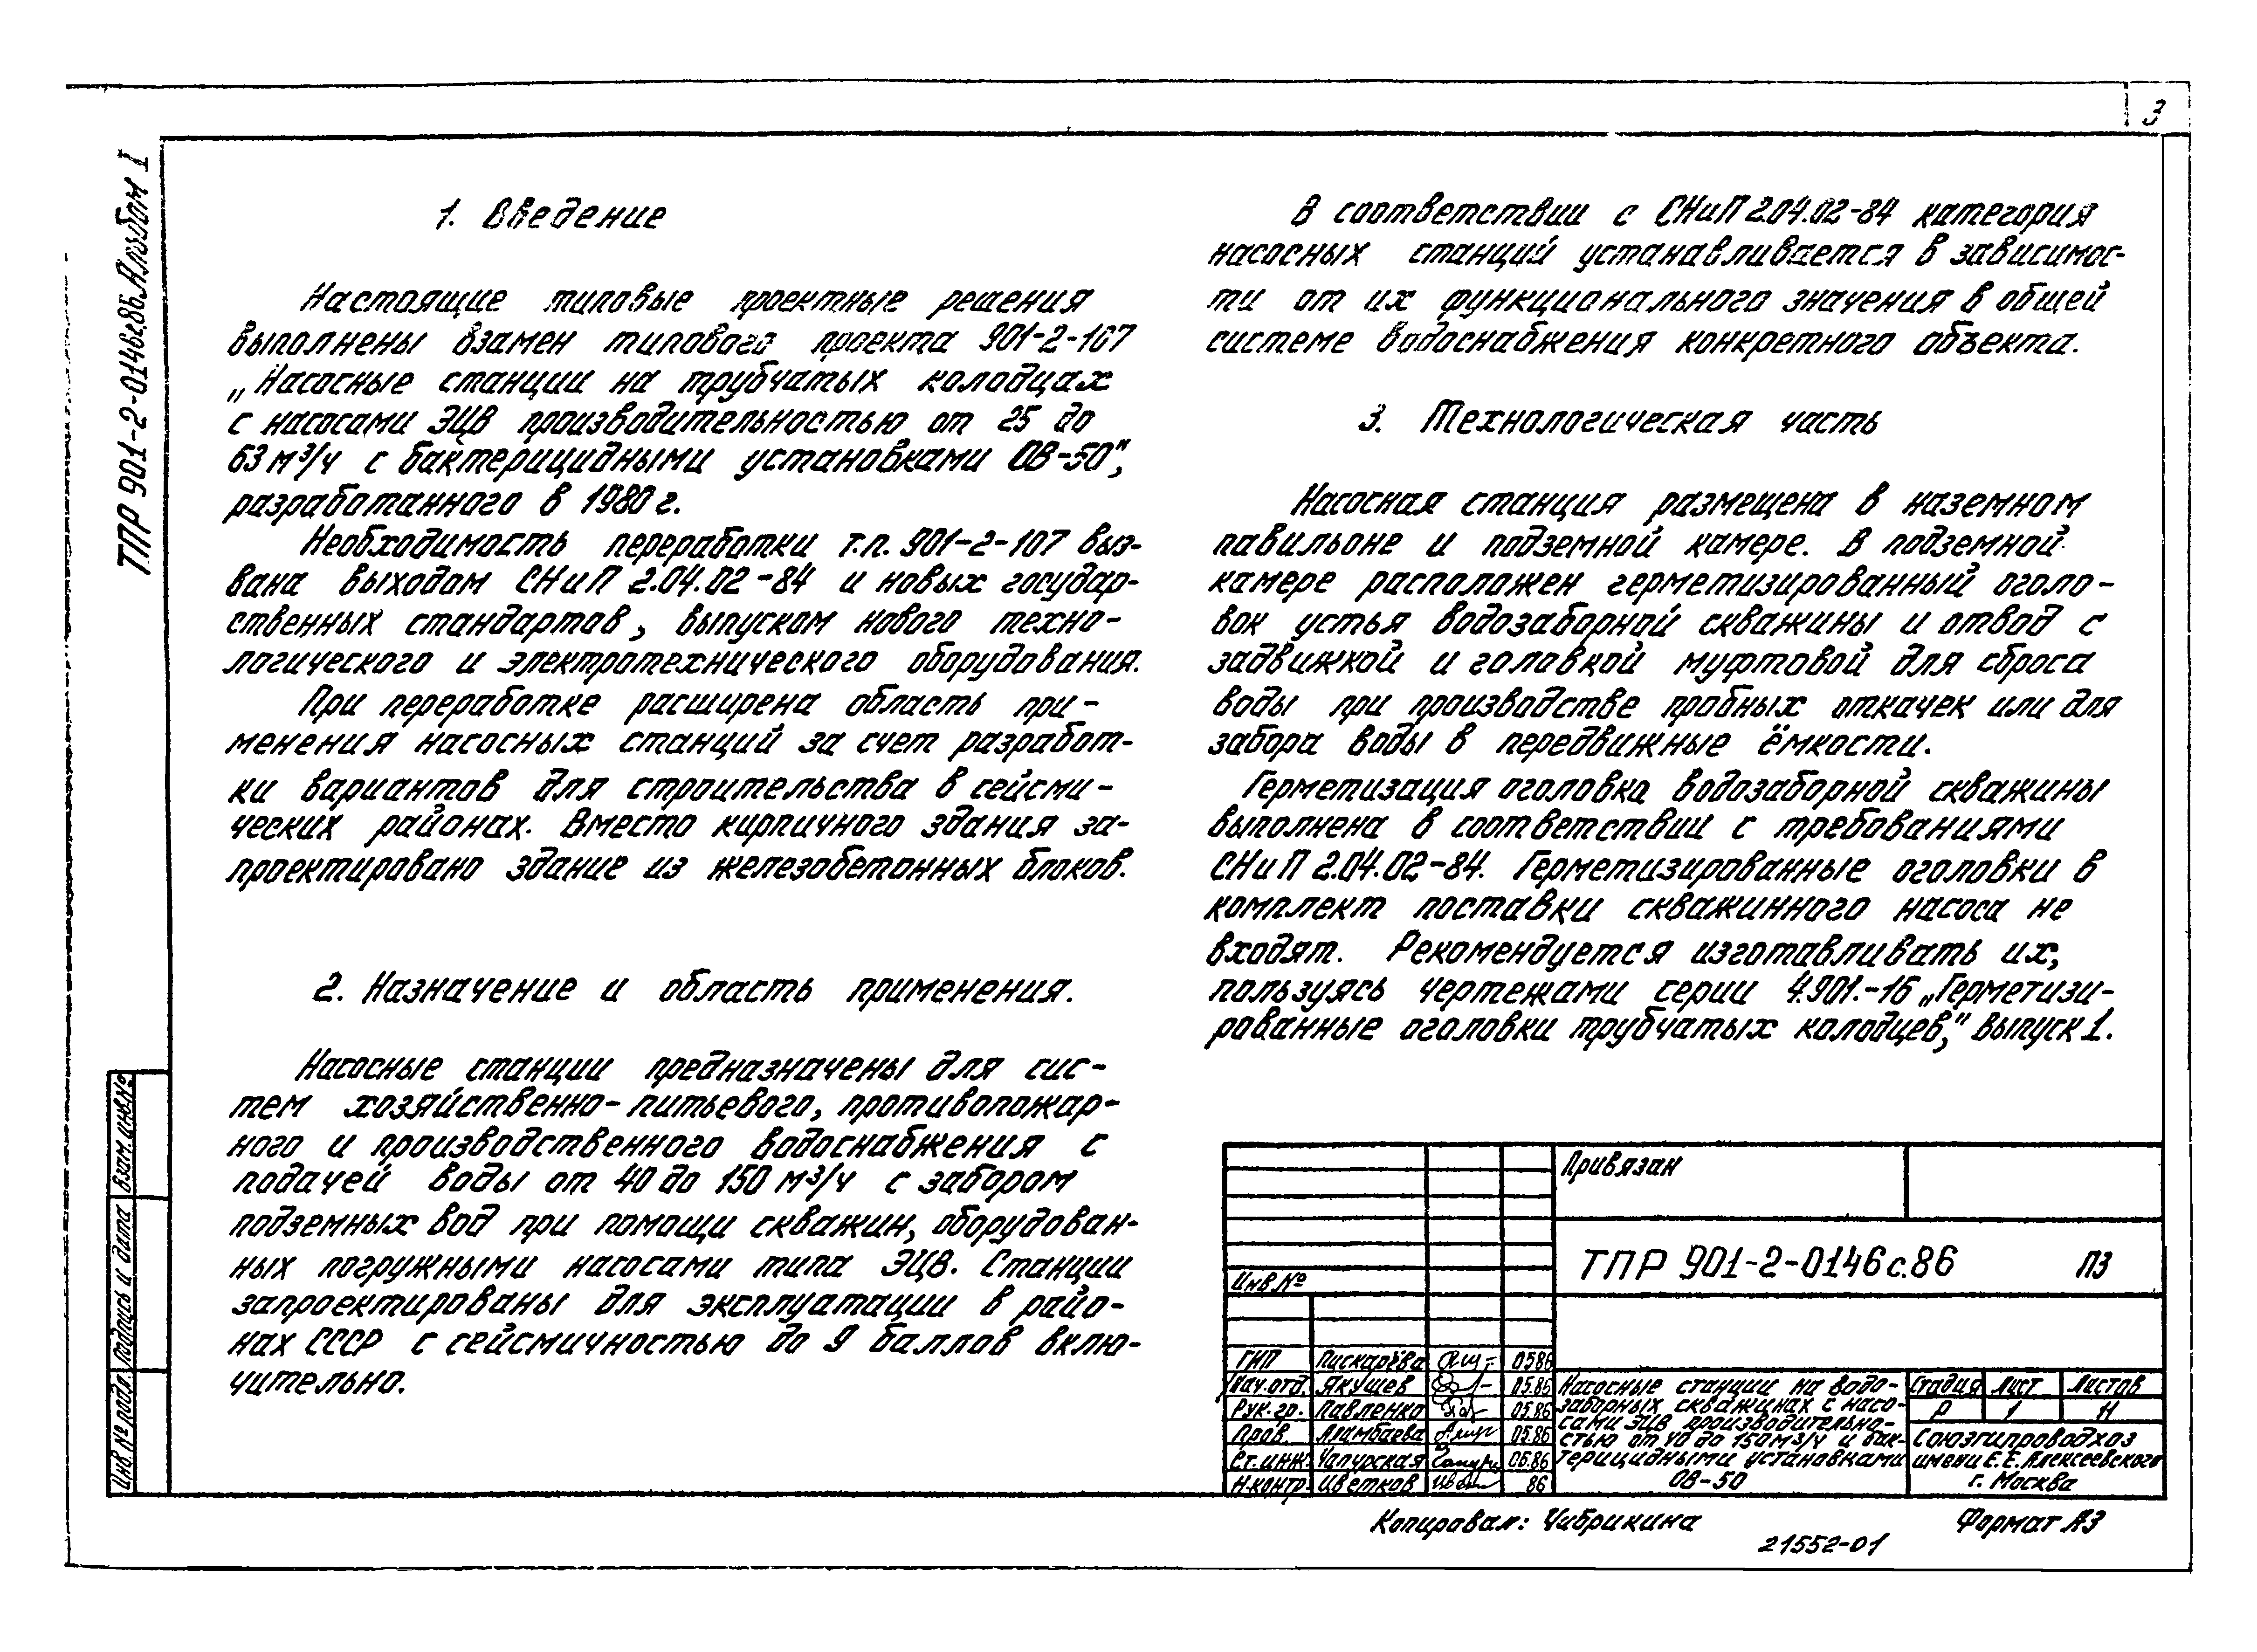 3
ТПР 901-2-0146с.86. Альбом I
1. Введение
Настоящие типовые проектные решения
выполнены взамен типового проекта 901-2-107
„Насосные станции на трубчатых колодцах
с насосами ЭЦВ производительностью от 25 до
63 м³/ч с бактерицидными установками ОВ-50",
разработанного в 1980 г.
Необходимость переработки т.п. 901-2-107 выз-
вана выходом СНиП 2.04.02-84 и новых государ-
ственных стандартов, выпуском нового техно-
логического и электротехнического оборудования.
При переработке расширена область при-
менения насосных станций за счет разработ-
ки вариантов для строительства в сейсми-
ческих районах. Вместо кирпичного здания за-
проектировано здание из железобетонных блоков.
2. Назначение и область применения.
Насосные станции предназначены для сис-
тем хозяйственно-питьевого, противопожар-
ного и производственного водоснабжения с
подачей воды от 40 до 150 м³/ч с забором
подземных вод при помощи скважин, оборудован-
ных погружными насосами типа ЭЦВ. Станции
запроектированы для эксплуатации в райо-
нах СССР с сейсмичностью до 9 баллов вклю-
чительно.
В соответствии с СНиП 2.04.02-84 категория
насосных станций устанавливается в зависимос-
ти от их функционального значения в общей
системе водоснабжения конкретного объекта.
3. Технологическая часть
Насосная станция размещена в наземном
павильоне и подземной камере. В подземной
камере расположен герметизированный оголо-
вок устья водозаборной скважины и отвод с
задвижкой и головкой муфтовой для сброса
воды при производстве пробных откачек или для
забора воды в передвижные ёмкости.
Герметизация оголовка водозаборной скважины
выполнена в соответствии с требованиями
СНиП 2.04.02-84. Герметизированные оголовки в
комплект поставки скважинного насоса не
входят. Рекомендуется изготавливать их,
пользуясь чертежами серии 4.901.-16 „Герметизи-
рованные оголовки трубчатых колодцев", выпуск 1.
Взам. инв. №
Подпись и дата
Инв. № подл.
Привязан
Инв №
ТПР 901-2-0146 с.86 ПЗ
ГИП Пискарёва 05.86
Нач.отд. Якушев 05.86
Рук.гр. Павленко 05.86
Пров. Аламбаева 05.86
Ст.инж. Чапурская 05.86
Н.контр. Цветков 86
Насосные станции на водо-
заборных скважинах с насо-
сами ЭЦВ производительно-
стью от 40 до 150 м³/ч и бак-
терицидными установками
ОВ-50
Стадия Лист Листов
Р 1 11
Союзгипроводхоз
имени Е.Е. Алексеевского
г. Москва
Копировал: Чибрикина Формат А3
21552-01